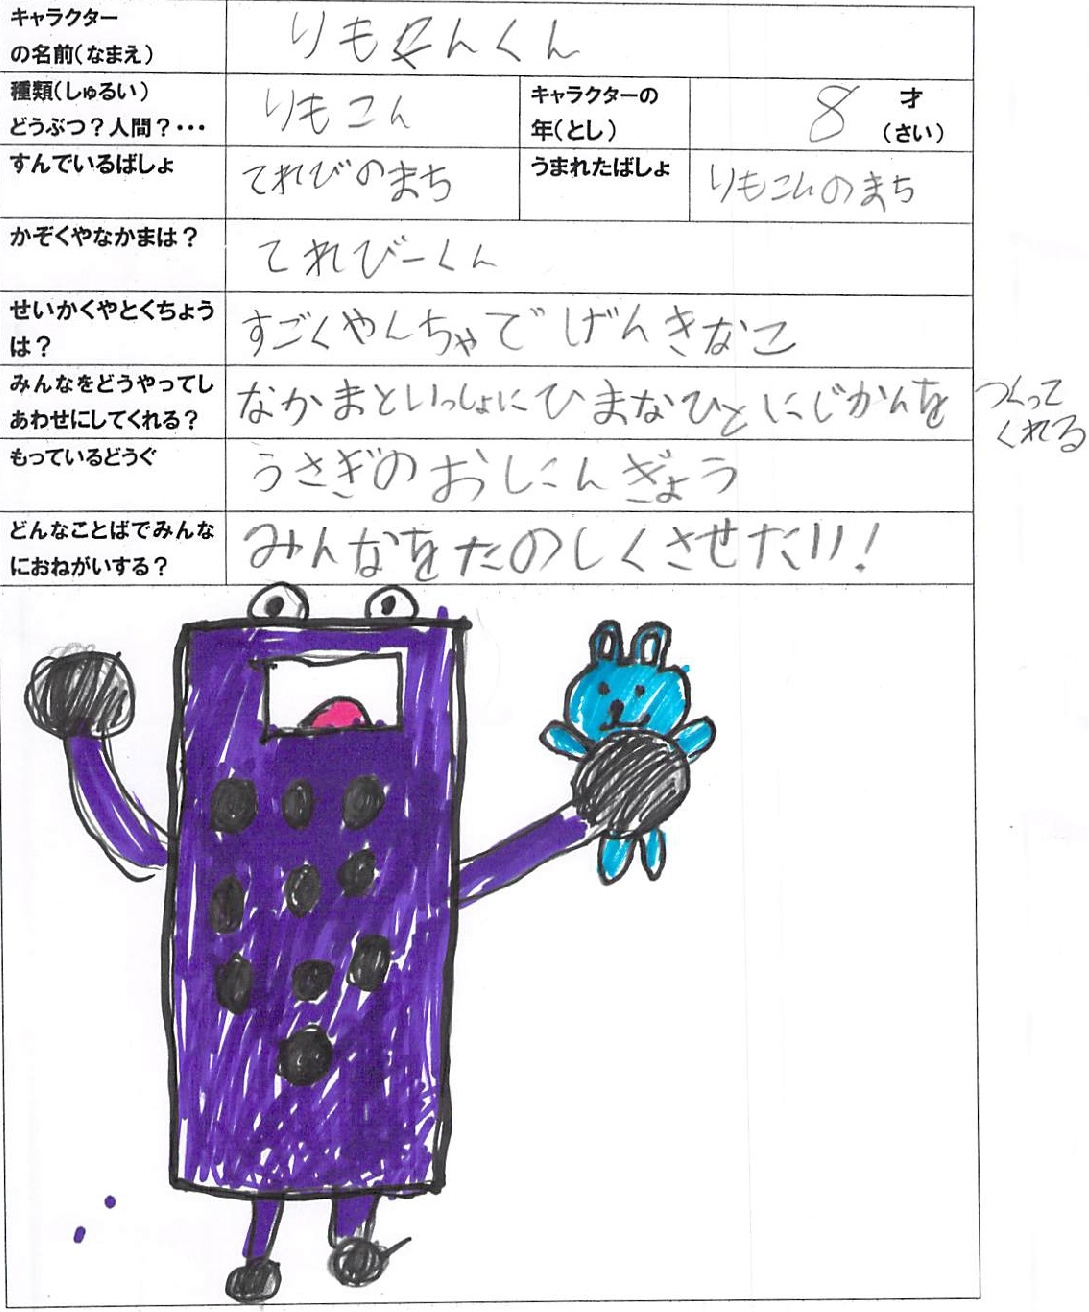 キャラクター
の名前(なまえ)
りもこんくん
種類(しゅるい)
どうぶつ?人間?・・・
りもこん
キャラクターの
年(とし)
8
才
(さい)
すんでいるばしょ
てれびのまち
うまれたばしょ
りもこんのまち
かぞくやなかまは?
てれびーくん
せいかくやとくちょう
は?
すごくやんちゃでげんきなこ
みんなをどうやってし
あわせにしてくれる?
なかまといっしょにひまなひとにじかんを
つくって
くれる
もっているどうぐ
うさぎのおしにんぎょう
どんなことばでみんな
におねがいする?
みんなをたのしくさせたい!